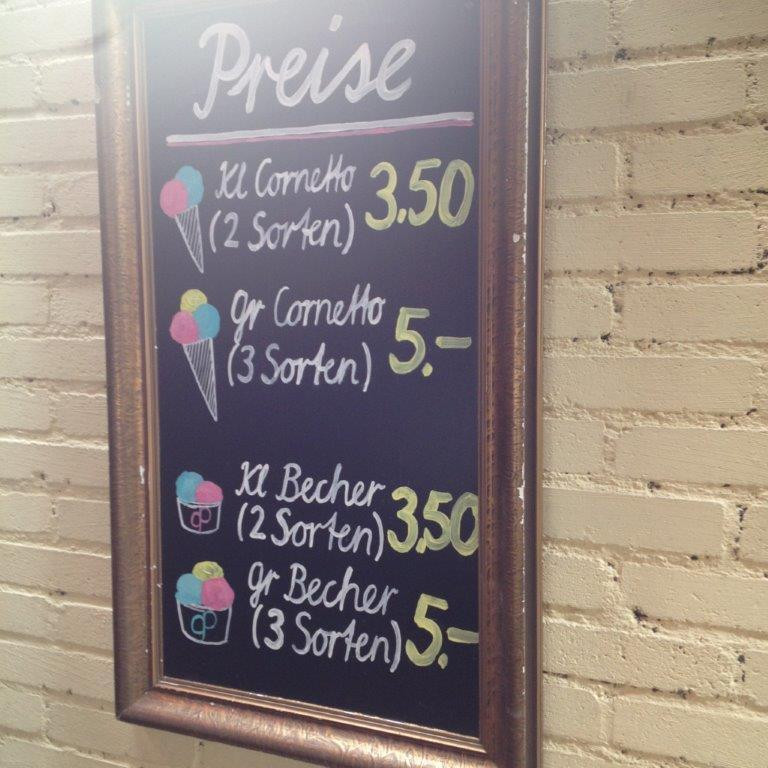 Preise
Kl Cornetto 3.50
(2 Sorten)
gr Cornetto 5.-
(3 Sorten)
Kl Becher 3.50
(2 Sorten)
gr Becher 5.-
(3 Sorten)